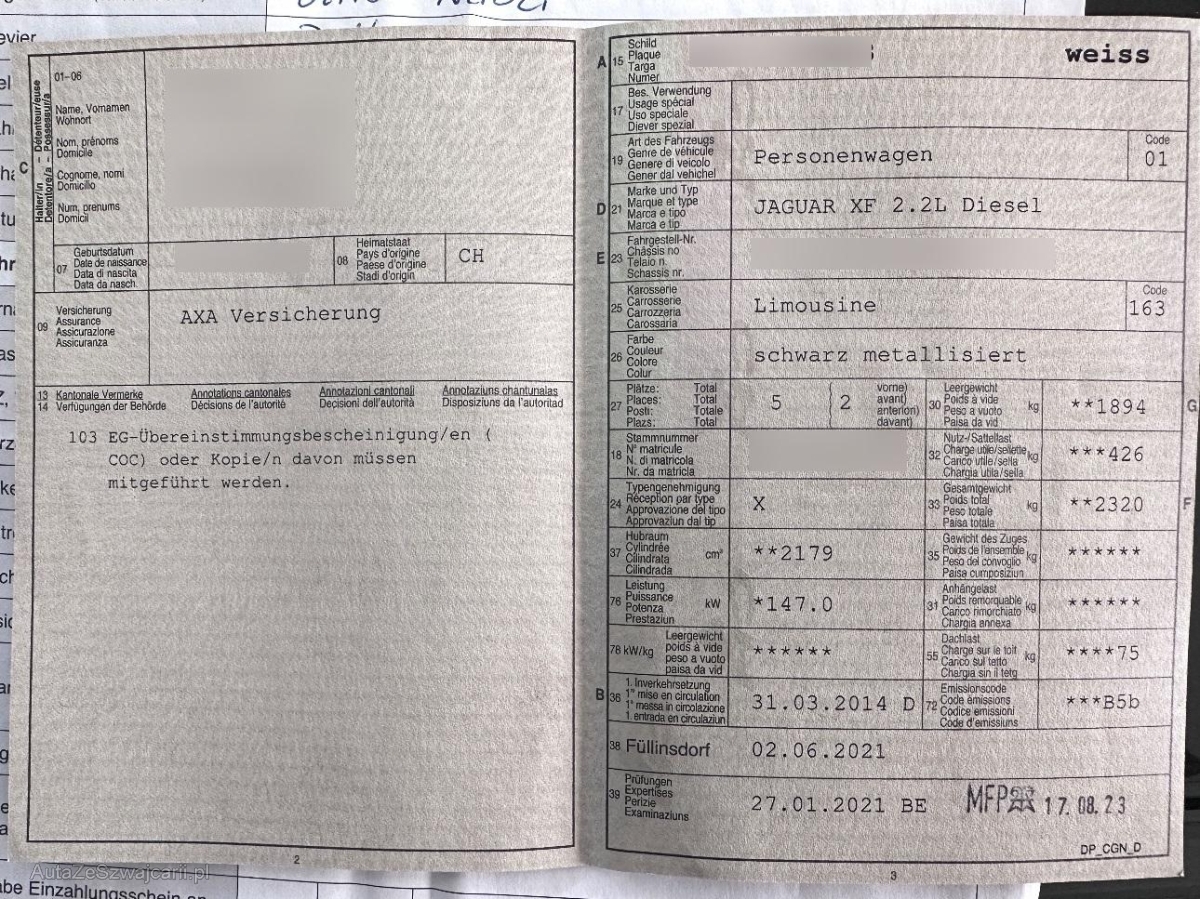 evier
01-06
Halter/in – Détenteur/euse
Detentore/a – Possessur/a
C
Name, Vornamen
Wohnort
Nom, prénoms
Domicile
Cognome, nomi
Domicilio
Num, prenums
Domicil
07
Geburtsdatum
Date de naissance
Data di nascita
Data da nasch.
08
Heimatstaat
Pays d'origine
Paese d'origine
Stadi d'origin
CH
09
Versicherung
Assurance
Assicurazione
Assicuranza
AXA Versicherung
13 Kantonale Vermerke Annotations cantonales Annotazioni cantonali Annotaziuns chantunalas
14 Verfügungen der Behörde Décisions de l'autorité Decisioni dell'autorità Disposiziuns da l'autoritad
103 EG-Übereinstimmungsbescheinigung/en (
COC) oder Kopie/n davon müssen
mitgeführt werden.
2
AutaZeSzwajcarii.pl
abe Einzahlungsschein an
A 15
Schild
Plaque
Targa
Numer
weiss
17
Bes. Verwendung
Usage spécial
Uso speciale
Diever spezial
19
Art des Fahrzeugs
Genre de véhicule
Genere di veicolo
Gener dal vehichel
Personenwagen
Code
01
D 21
Marke und Typ
Marque et type
Marca e tipo
Marca e tip
JAGUAR XF 2.2L Diesel
E 23
Fahrgestell-Nr.
Châssis no
Telaio n.
Schassis nr.
25
Karosserie
Carrosserie
Carrozzeria
Carossaria
Limousine
Code
163
26
Farbe
Couleur
Colore
Colur
schwarz metallisiert
27
Plätze: Total
Places: Total
Posti: Totale
Plazs: Total
5 ( 2
vorne)
avant)
anteriori)
davant)
30
Leergewicht
Poids à vide
Peso a vuoto
Paisa da vid
kg
**1894
G
18
Stammnummer
N° matricule
N. di matricola
Nr. da matricla
32
Nutz-/Sattellast
Charge utile/sellette
Carico utile/sella
Chargia utila/sella
kg
***426
24
Typengenehmigung
Réception par type
Approvazione del tipo
Approvaziun dal tip
X
33
Gesamtgewicht
Poids total
Peso totale
Paisa totala
kg
**2320
F
37
Hubraum
Cylindrée
Cilindrata
Cilindrada
cm³
**2179
35
Gewicht des Zuges
Poids de l'ensemble
Peso del convoglio
Paisa cumposiziun
kg
******
76
Leistung
Puissance
Potenza
Prestaziun
kW
*147.0
31
Anhängelast
Poids remorquable
Carico rimorchiato
Chargia annexa
kg
******
78 kW/kg
Leergewicht
poids à vide
peso a vuoto
paisa da vid
******
55
Dachlast
Charge sur le toit
Carico sul tetto
Chargia sin il tetg
kg
****75
B 36
1. Inverkehrsetzung
1re mise en circulation
1a messa in circolazione
1. entrada en circulaziun
31.03.2014 D
72
Emissionscode
Code émissions
Codice emissioni
Code d'emissiuns
***B5b
38 Füllinsdorf
02.06.2021
39
Prüfungen
Expertises
Perizie
Examinaziuns
27.01.2021 BE
MFP 17.08.23
DP_CGN_D
3